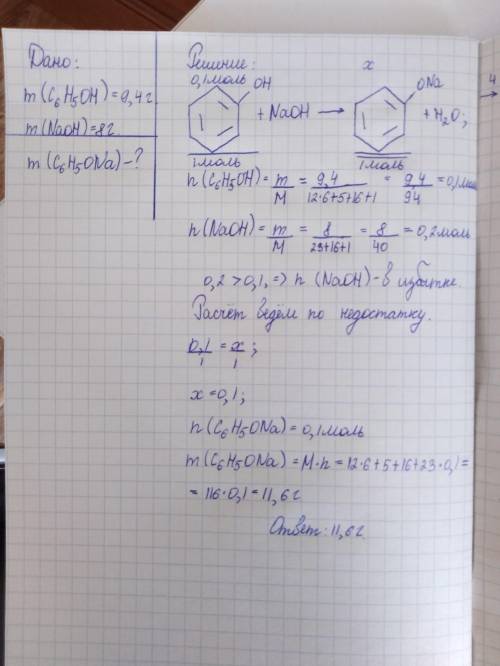 Дано:
m(C₆H₅OH)=9,4г
m(NaOH)=8г
m(C₆H₅ONa)-?
Решение:
0,1моль x
OH ONa
+NaOH → +H₂O;
1моль 1моль
n(C₆H₅OH)=m/M=9,4/12·6+5+16+1=9,4/94=0,1моль
n(NaOH)=m/M=8/23+16+1=8/40=0,2моль
0,2>0,1,=>n(NaOH)-в избытке.
Расчёт ведём по недостатку.
0,1/1=x/1;
x=0,1;
n(C₆H₅ONa)=0,1моль
m(C₆H₅ONa)=M·n=12·6+5+16+23·0,1=
=116·0,1=11,6г
Ответ: 11,6г.
4